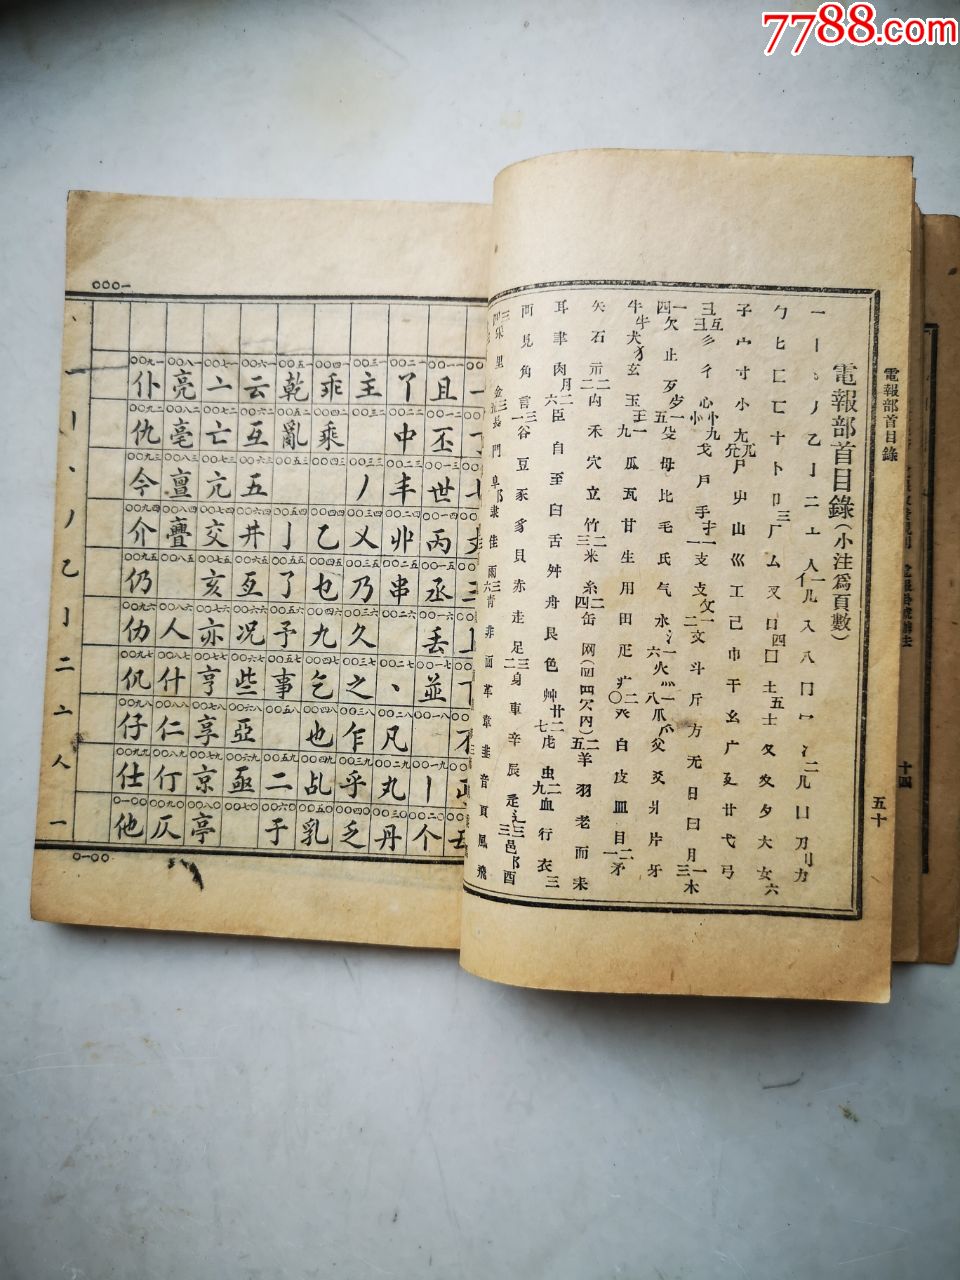 7788.com
電報部首目錄
五十
電報部首目錄(小注爲頁數)
一丨丶丿乙亅二亠人亻一儿入八冂冖冫二几凵刀刂力
勹匕匚匸十卜卩三厂厶又口四囗土五士夂夊夕大女六
子宀寸小尢兀尸屮山巛工己巾干幺广廴廾弋弓
彐彑彡彳心忄九戈戶手扌一支攴攵一文斗斤方无日曰月一木三
四欠止歹歺一五殳毋比毛氏气水氵一六火灬一八爪爫父爻爿片牙
牛牜犬犭玄玉王一九瓜瓦甘生用田疋疒二〇癶白皮皿目二一矛
矢石示礻二禸禾穴立竹二三米糸二四缶网二五羊羽老而耒
耳聿肉月二六臣自至臼舌舛舟艮色艸廿二七虍虫二九血行衣三
襾見角言三一谷豆豕豸貝赤走足三二身車辛辰辵辶三三邑阝酉
釆里金三長門阜阝隶隹雨三六青非面革韋韭音頁風飛
十四
〇〇〇一
且丕世丙丞丢並丨个
丫中丰丱串丶凡丸丹
主丿乂乃久之乍乎乏
乖乘乙乜九乞也乩乳
乾亂亅了予事二于
云互五井亙况些亞亟
亠亡亢交亥亦亨享京亭
亮亳亶亹人什仁仃仄
仆仇今介仍仂仉仔仕他
丶一丨丶丿乙亅二亠人一
〇一〇〇